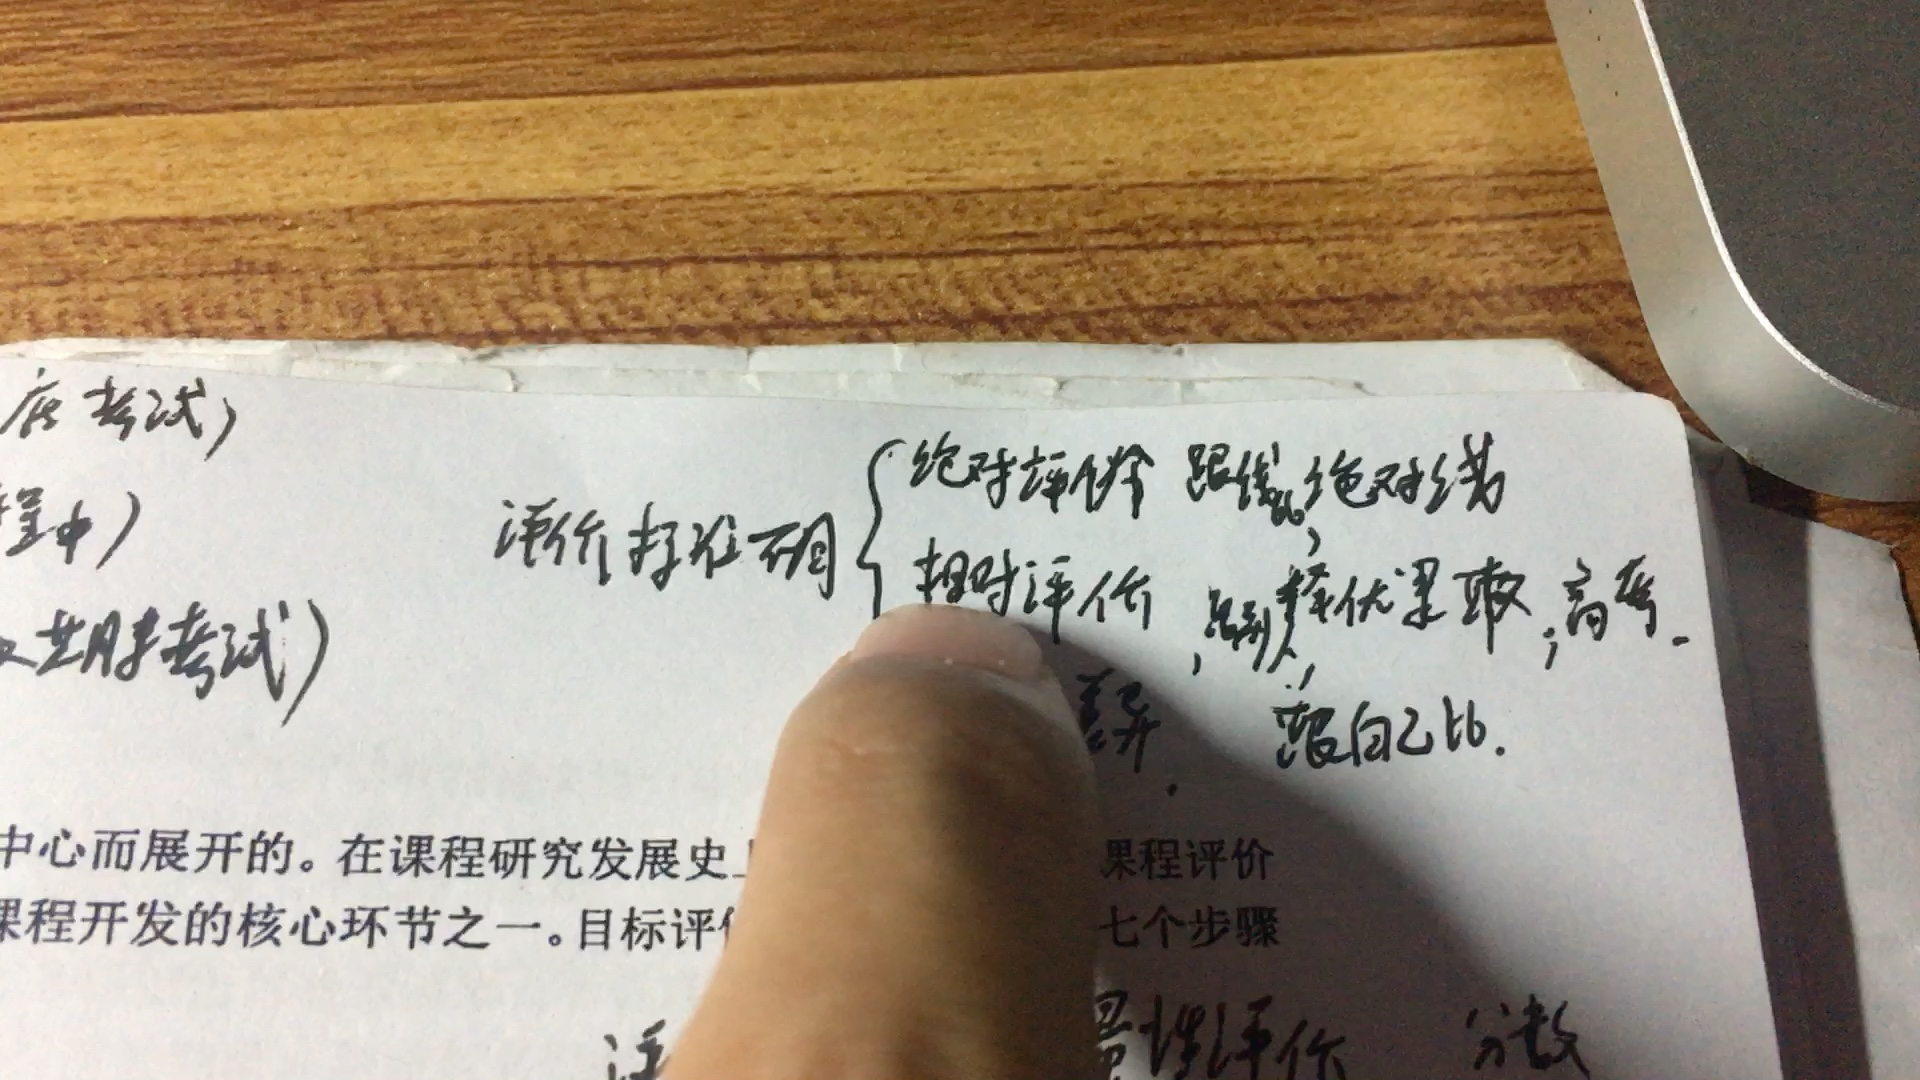 考试)
程中)
考试)
评价标准不同
绝对评价 跟线比,绝对线
相对评价 跟别人,择优录取,高考.
差异 跟自己比.
中心而展开的。在课程研究发展史 课程评价
课程开发的核心环节之一。目标评价 七个步骤
性评价 分数